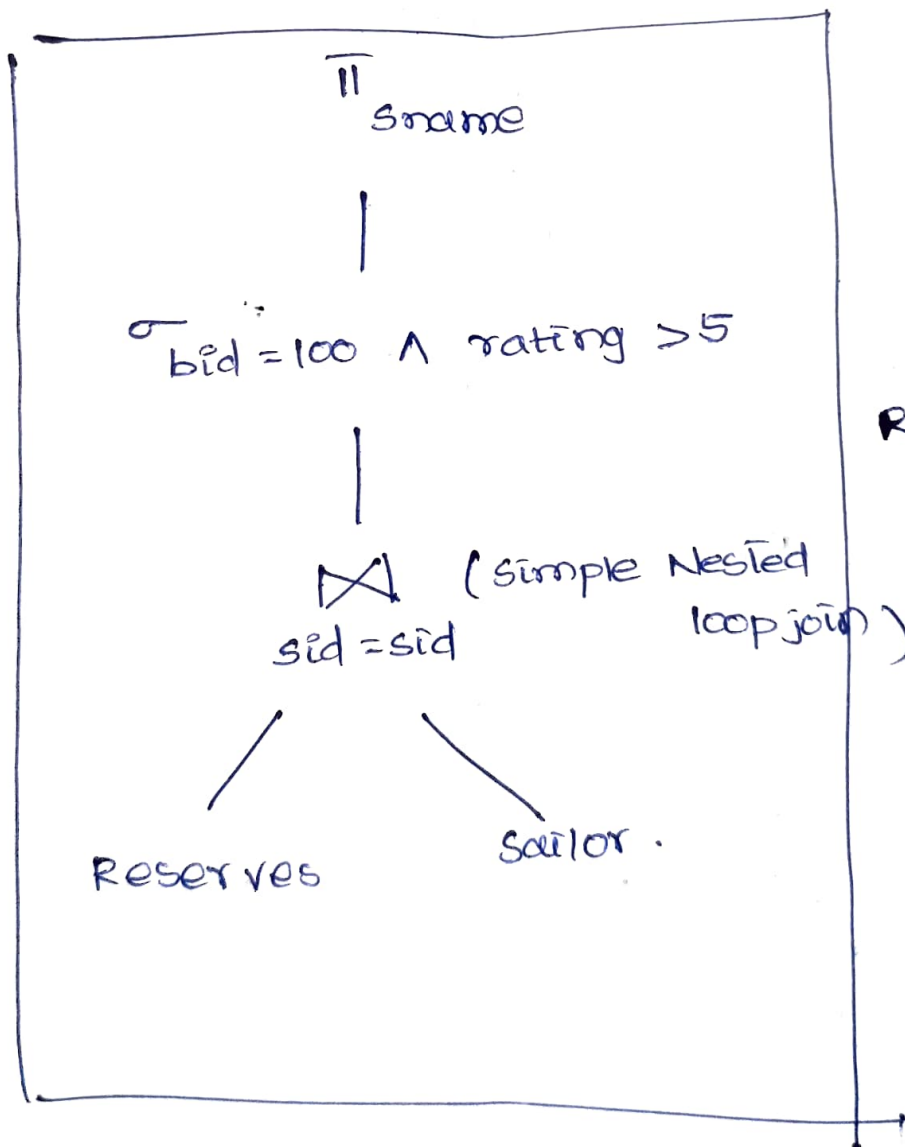 π
sname
σ bid = 100 ∧ rating > 5
R
⋈ (Simple Nested
loop join)
sid = sid
Reserves
Sailor.